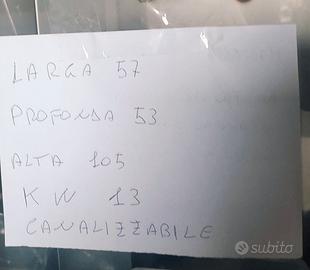 LARGA 57
PROFONDA 53
ALTA 105
KW 13
CANALIZZABILE
subito